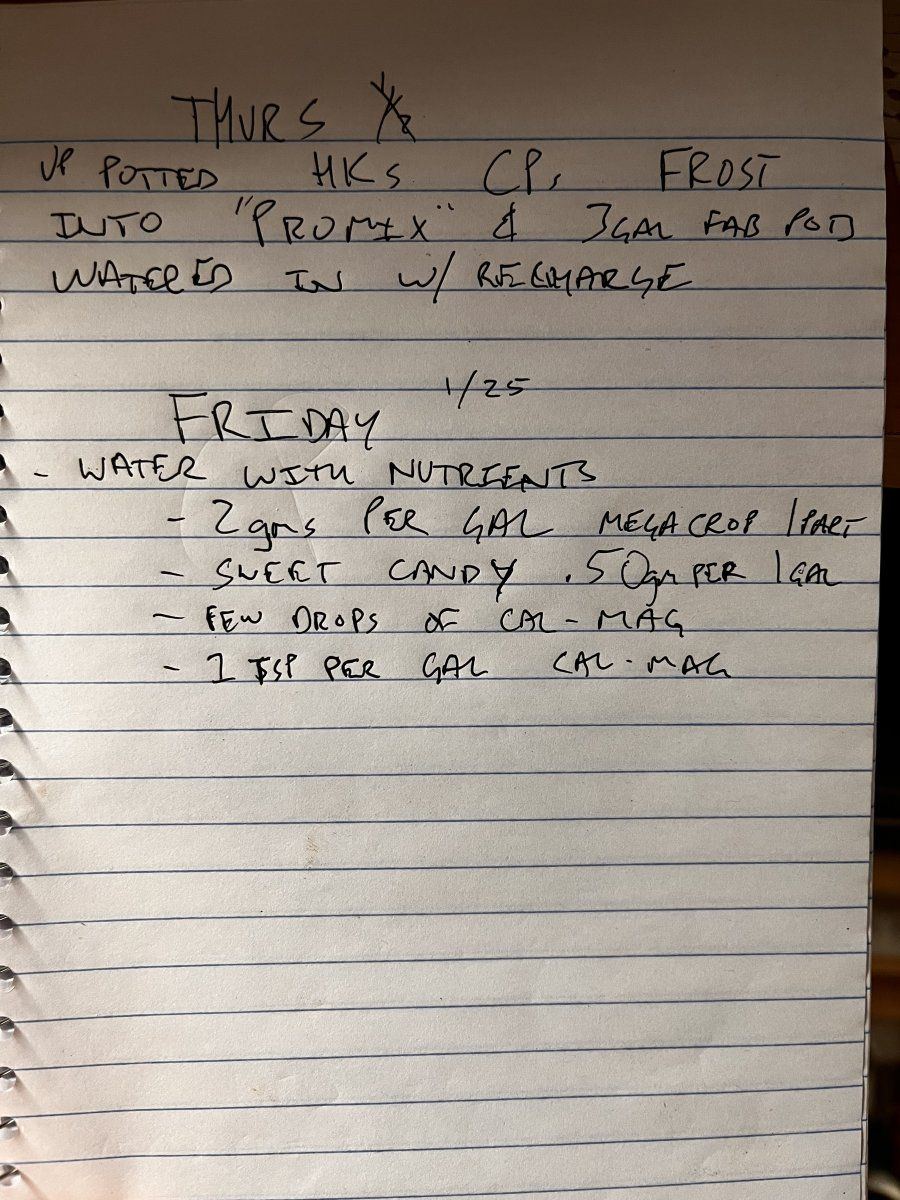 THURS
UP POTTED HKs CPs FROST
INTO "PROMIX" & 3GAL FAB POT
WATERED IN W/ RECHARGE
FRIDAY 1/25
- WATER WITH NUTRIENTS
- 2gms PER GAL MEGACROP 1PART
- SWEET CANDY .50gm PER 1GAL
- FEW DROPS OF CAL-MAG
- 1 TSP PER GAL CAL-MAG